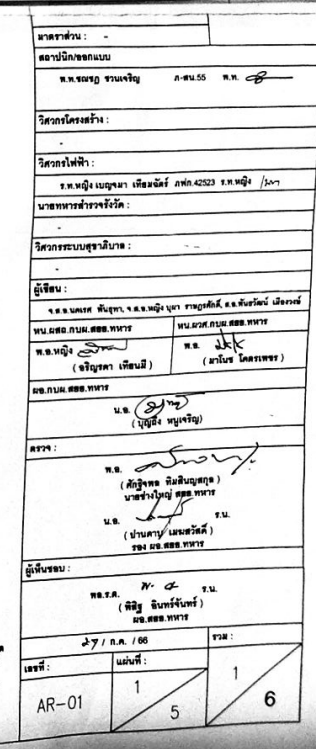 มาตราส่วน : -
สถาปนิก/ออกแบบ
พ.ท.ชณชฎ ชวนเจริญ ภ-สน.55 พ.ท.
วิศวกรโครงสร้าง :
-
วิศวกรไฟฟ้า :
ร.ท.หญิง เบญจมา เทียมฉัตร์ ภฟก.42523 ร.ท.หญิง
นายทหารสำรวจรังวัด :
-
วิศวกรระบบสุขาภิบาล :
-
ผู้เขียน :
จ.ส.อ.นคเรศ พันธุทา, จ.ส.อ.หญิง บุผา ราษฎรศักดิ์, ส.อ.พันธวัฒน์ เมืองวงษ์
หน.ผสถ.กบผ.สยย.ทหาร หน.ผวศ.กบผ.สยย.ทหาร
พ.อ.หญิง พ.อ.
( อริญรดา เทียนมี ) ( มาโนช โคตรเพชร )
ผอ.กบผ.สยย.ทหาร
น.อ.
( บุญถึง หนูเจริญ)
ตรวจ :
พ.อ.
( ศักฐิจพล ทิมสินญสกุล )
นายช่างใหญ่ สยย.ทหาร
น.อ. ร.น.
( ปานคาบ เมฆสวัสดิ์ )
รอง ผอ.สยย.ทหาร
ผู้เห็นชอบ :
พล.ร.ต. ร.น.
( พิสิฐ อินทร์จันทร์ )
ผอ.สยย.ทหาร
27 / ก.ค. / 66 รวม :
เลขที่ : แผ่นที่ :
AR-01 1 5 1 6